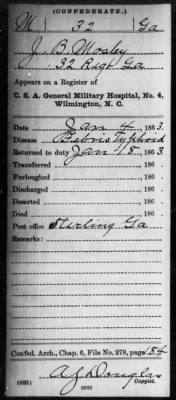 (CONFEDERATE.)
M 32 Ga
J. B. Mosley
32 Regt. Ga
Appears on a Register of
C. S. A. General Military Hospital, No. 4,
Wilmington, N. C.
Date Jan 4, 1863.
Disease Febris Typhoid
Returned to duty Jan 18, 1863.
Transferred , 186
Furloughed , 186
Discharged , 186
Deserted , 186
Died , 186
Post office Stirling Ga
Remarks:
Confed. Arch., Chap. 6, File No. 278, page 154
A J Douglas
(635) Copyist.